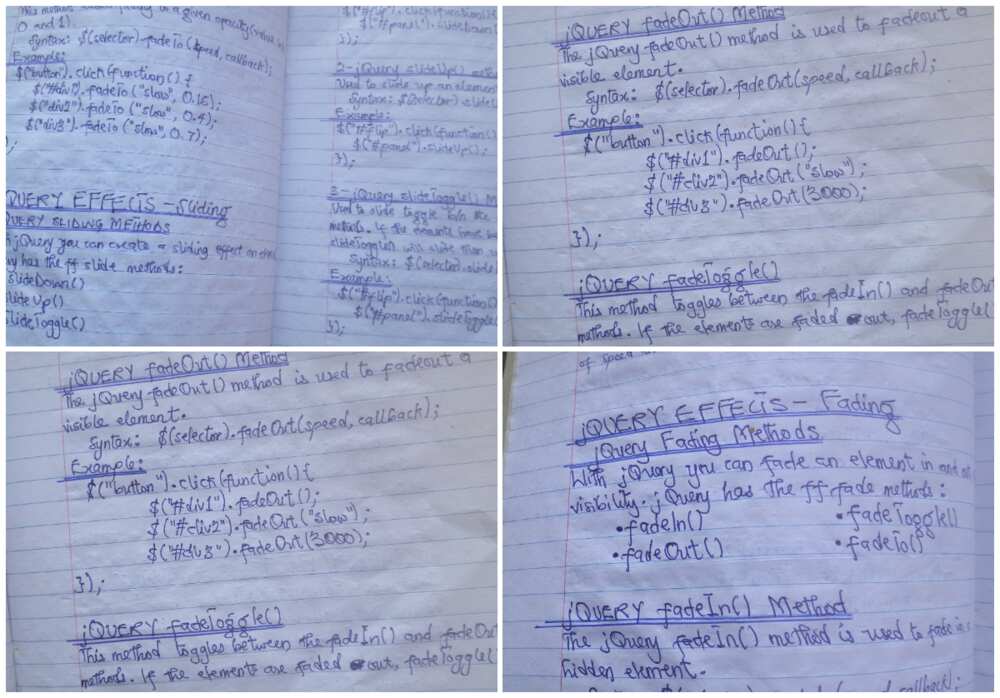 This method
a given opacity(value
0 and 1).
Syntax: $(selector).fadeTo(speed, callback);
Example:
$("button").click(function() {
$("#div1").fadeTo("slow", 0.15);
$("div2").fadeTo("slow", 0.4);
$("div3").fadeTo("slow", 0.7);
);
QUERY EFFECTS - Sliding
QUERY SLIDING METHODS
jQuery you can create a sliding effect on
has the ff slide methods:
slideDown()
slideUp()
slideToggle()
$("#flip").click(function()
$("#panel").slideDown
});
2- jQuery slideUp()
Used to slide up an element
Syntax: $(selector).slide
Example:
$("#flip").click(function()
$("#panel").slideUp();
});
3- jQuery slideToggle()
Used to slide toggle b/n the
methods. If the elements have
slideToggle() will slide them
Syntax: $(selector).slide
Example:
$("#flip").click(function()
$("#panel").slideToggle(
});
jQUERY fadeOut() Method
The jQuery fadeOut() method is used to fadeout a
visible element.
Syntax: $(selector).fadeOut(speed, callback);
Example:
$("button").click(function(){
$("#div1").fadeOut();
$("#div2").fadeOut("slow");
$("#div3").fadeOut(3000);
});
jQUERY fadeToggle()
This method toggles between the fadeIn() and fadeOut
methods. If the elements are faded out, fadeToggle(
jQUERY fadeOut() Method
The jQuery fadeOut() method is used to fadeout a
visible element.
Syntax: $(selector).fadeOut(speed, callback);
Example:
$("button").click(function(){
$("#div1").fadeOut();
$("#div2").fadeOut("slow");
$("#div3").fadeOut(3000);
});
jQUERY fadeToggle()
This method toggles between the fadeIn() and fadeOut
methods. If the elements are faded out, fadeToggle(
of speed
jQUERY EFFECTS - Fading
jQuery Fading Methods
With jQuery you can fade an element in and
visibility. jQuery has the ff fade methods:
•fadeIn() •fadeToggle()
•fadeOut() •fadeTo()
jQUERY fadeIn() Method
The jQuery fadeIn() method is used to fade in
hidden element.
callback);